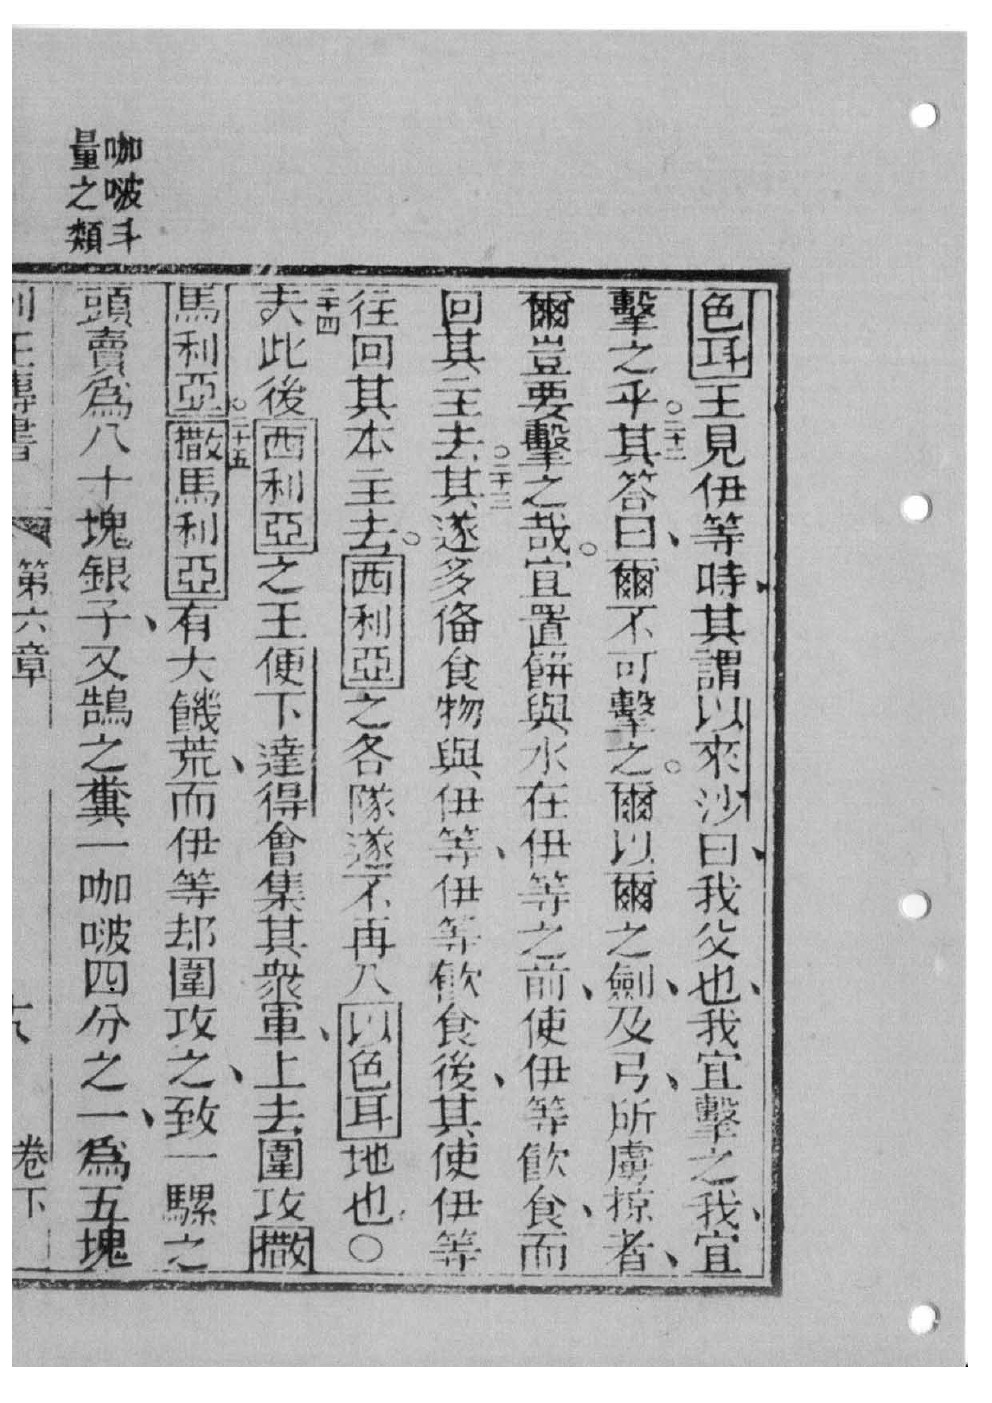 咖啵斗
量之類
色耳王見伊等時其謂以來沙曰、我父也、我宜擊之、我宜
擊之乎。二十二其答曰、爾不可擊之。爾以爾之劍、及弓、所虜掠者、
爾豈要擊之哉。宜置餅與水在伊等之前、使伊等飲食、而
回其主去。二十三其遂多偹食物與伊等、伊等飲食後、其使伊等
往回其本主去。西利亞之各隊遂不再入以色耳地也〇
二十四夫此後西利亞之王便下達得會集其衆軍、上去圍攻撒
馬利亞。二十五撒馬利亞有大饑荒、而伊等却圍攻之、致一騾之
頭賣爲八十塊銀子、又鵠之糞一咖啵四分之一、爲五塊
列王傳書 第六章 卷下